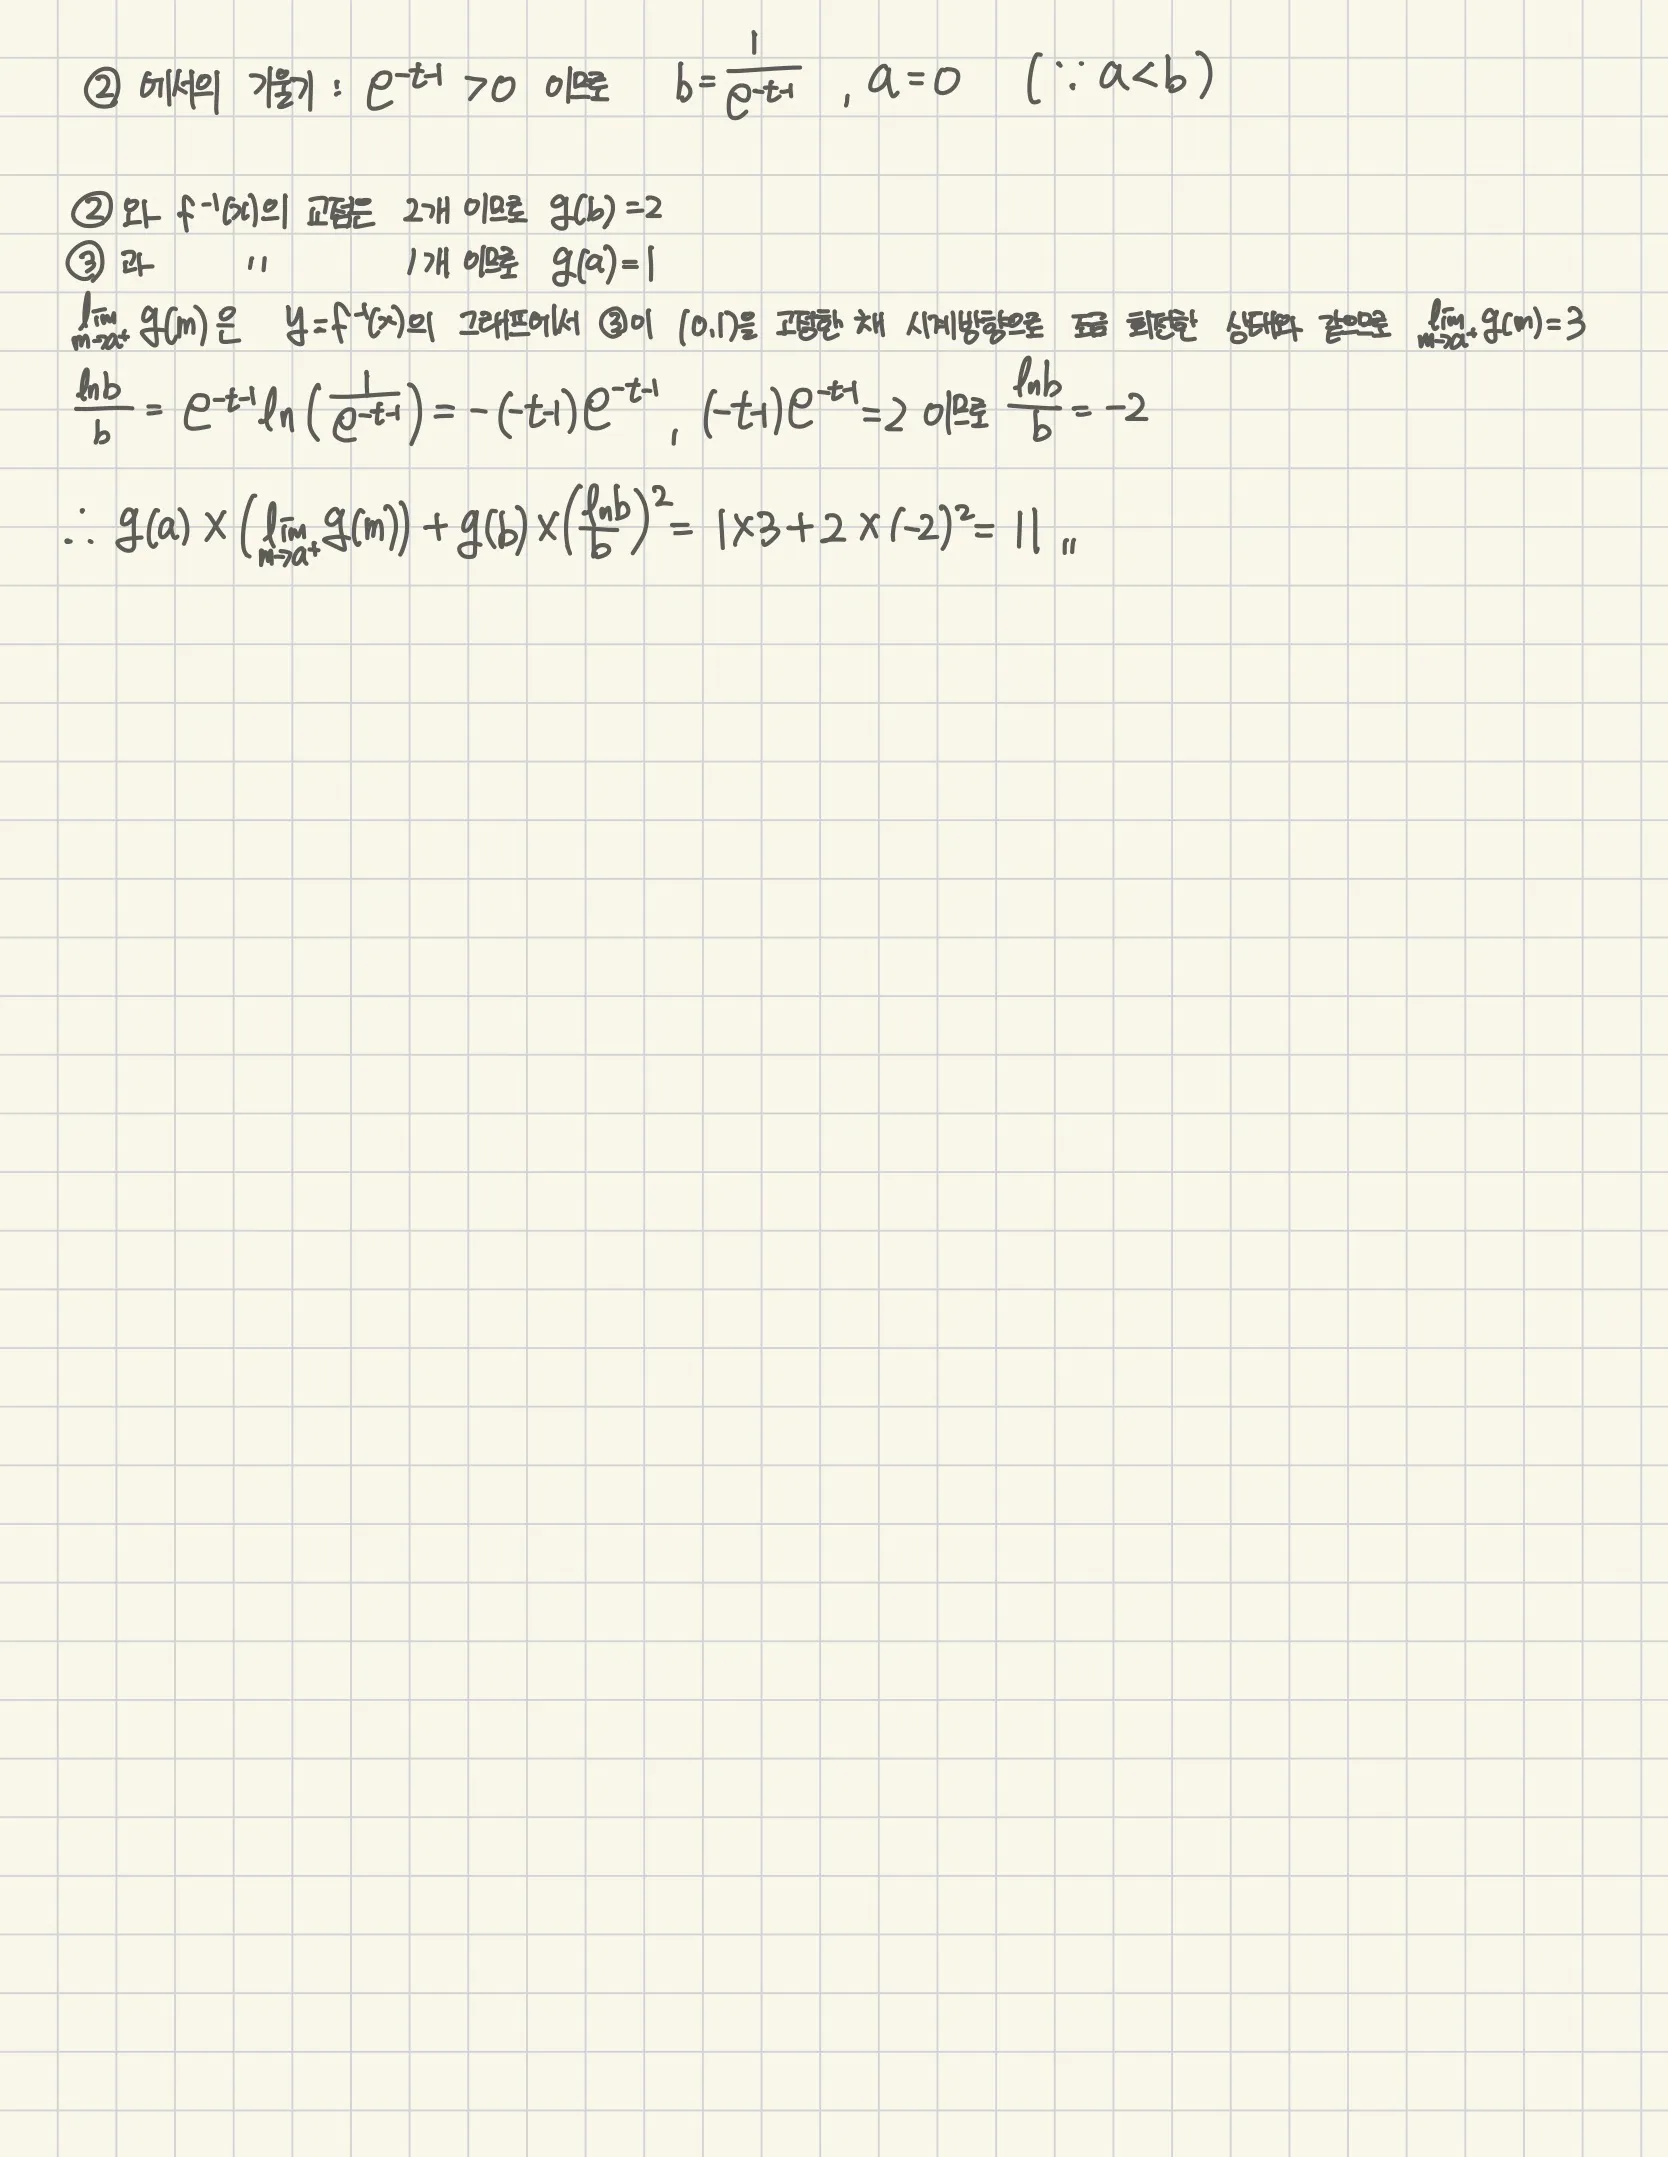 ② 에서의 기울기 : e^{-t-1} > 0 이므로 b = 1/e^{-t-1} , a = 0 (∵ a < b)
② 와 f^{-1}(x)의 교점은 2개 이므로 g(b) = 2
③ 과 〃 1개 이므로 g(a) = 1
lim_{m→a⁺} g(m) 은 y = f^{-1}(x)의 그래프에서 ③이 (0,1)을 고정한 채 시계방향으로 조금 회전한 상태와 같으므로 lim_{m→a⁺} g(m) = 3
lnb/b = e^{-t-1} ln(1/e^{-t-1}) = -(-t-1)e^{-t-1} , (-t-1)e^{-t-1} = 2 이므로 lnb/b = -2
∴ g(a) × (lim_{m→a⁺} g(m)) + g(b) × (lnb/b)² = 1×3 + 2 × (-2)² = 11 〃